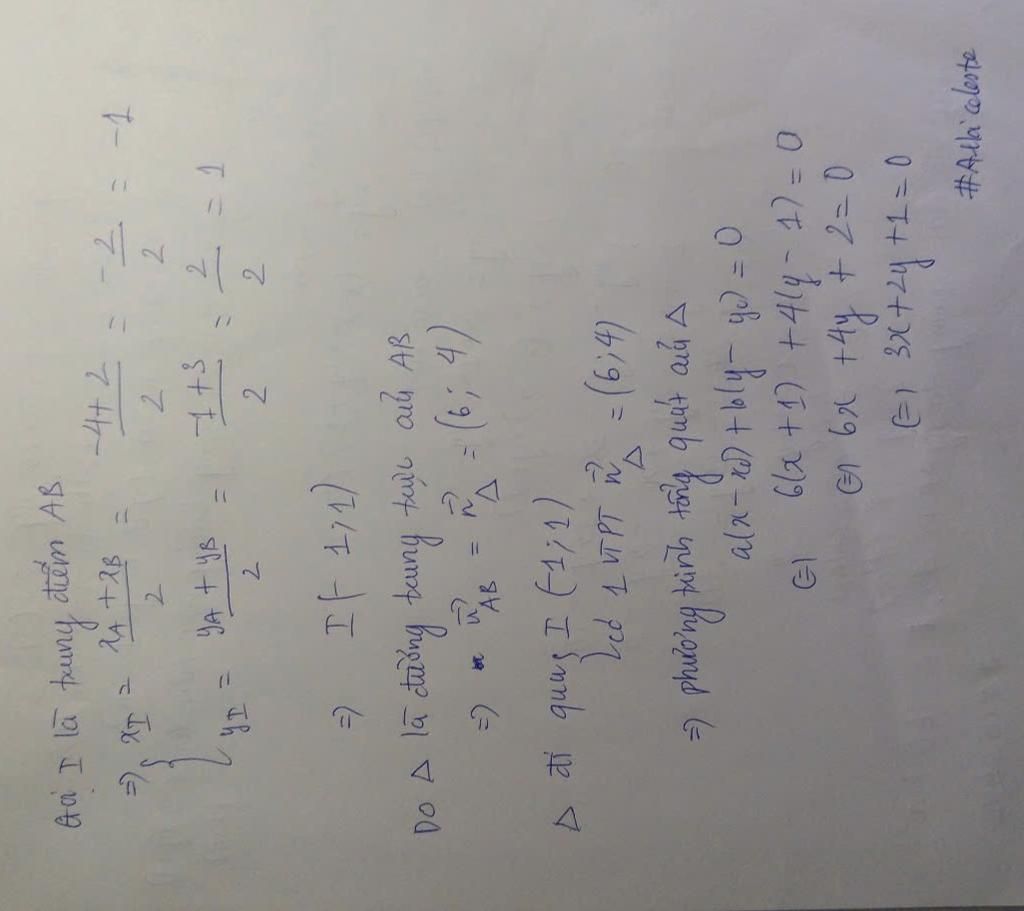 Gọi I là trung điểm AB
=> { x_I = (x_A + x_B)/2 = (-4+2)/2 = -2/2 = -1
y_I = (y_A + y_B)/2 = (-1+3)/2 = 2/2 = 1
=> I(-1;1)
Do Δ là đường trung trực của AB
=> u⃗_AB = n⃗_Δ = (6; 4)
Δ đi qua { I (-1;1)
có 1 VTPT n⃗_Δ = (6;4)
=> phương trình tổng quát của Δ
a(x-x0)+b(y-y0)=0
(=) 6(x+1)+4(y-1)=0
(=) 6x+4y+2=0
(=) 3x+2y+1=0